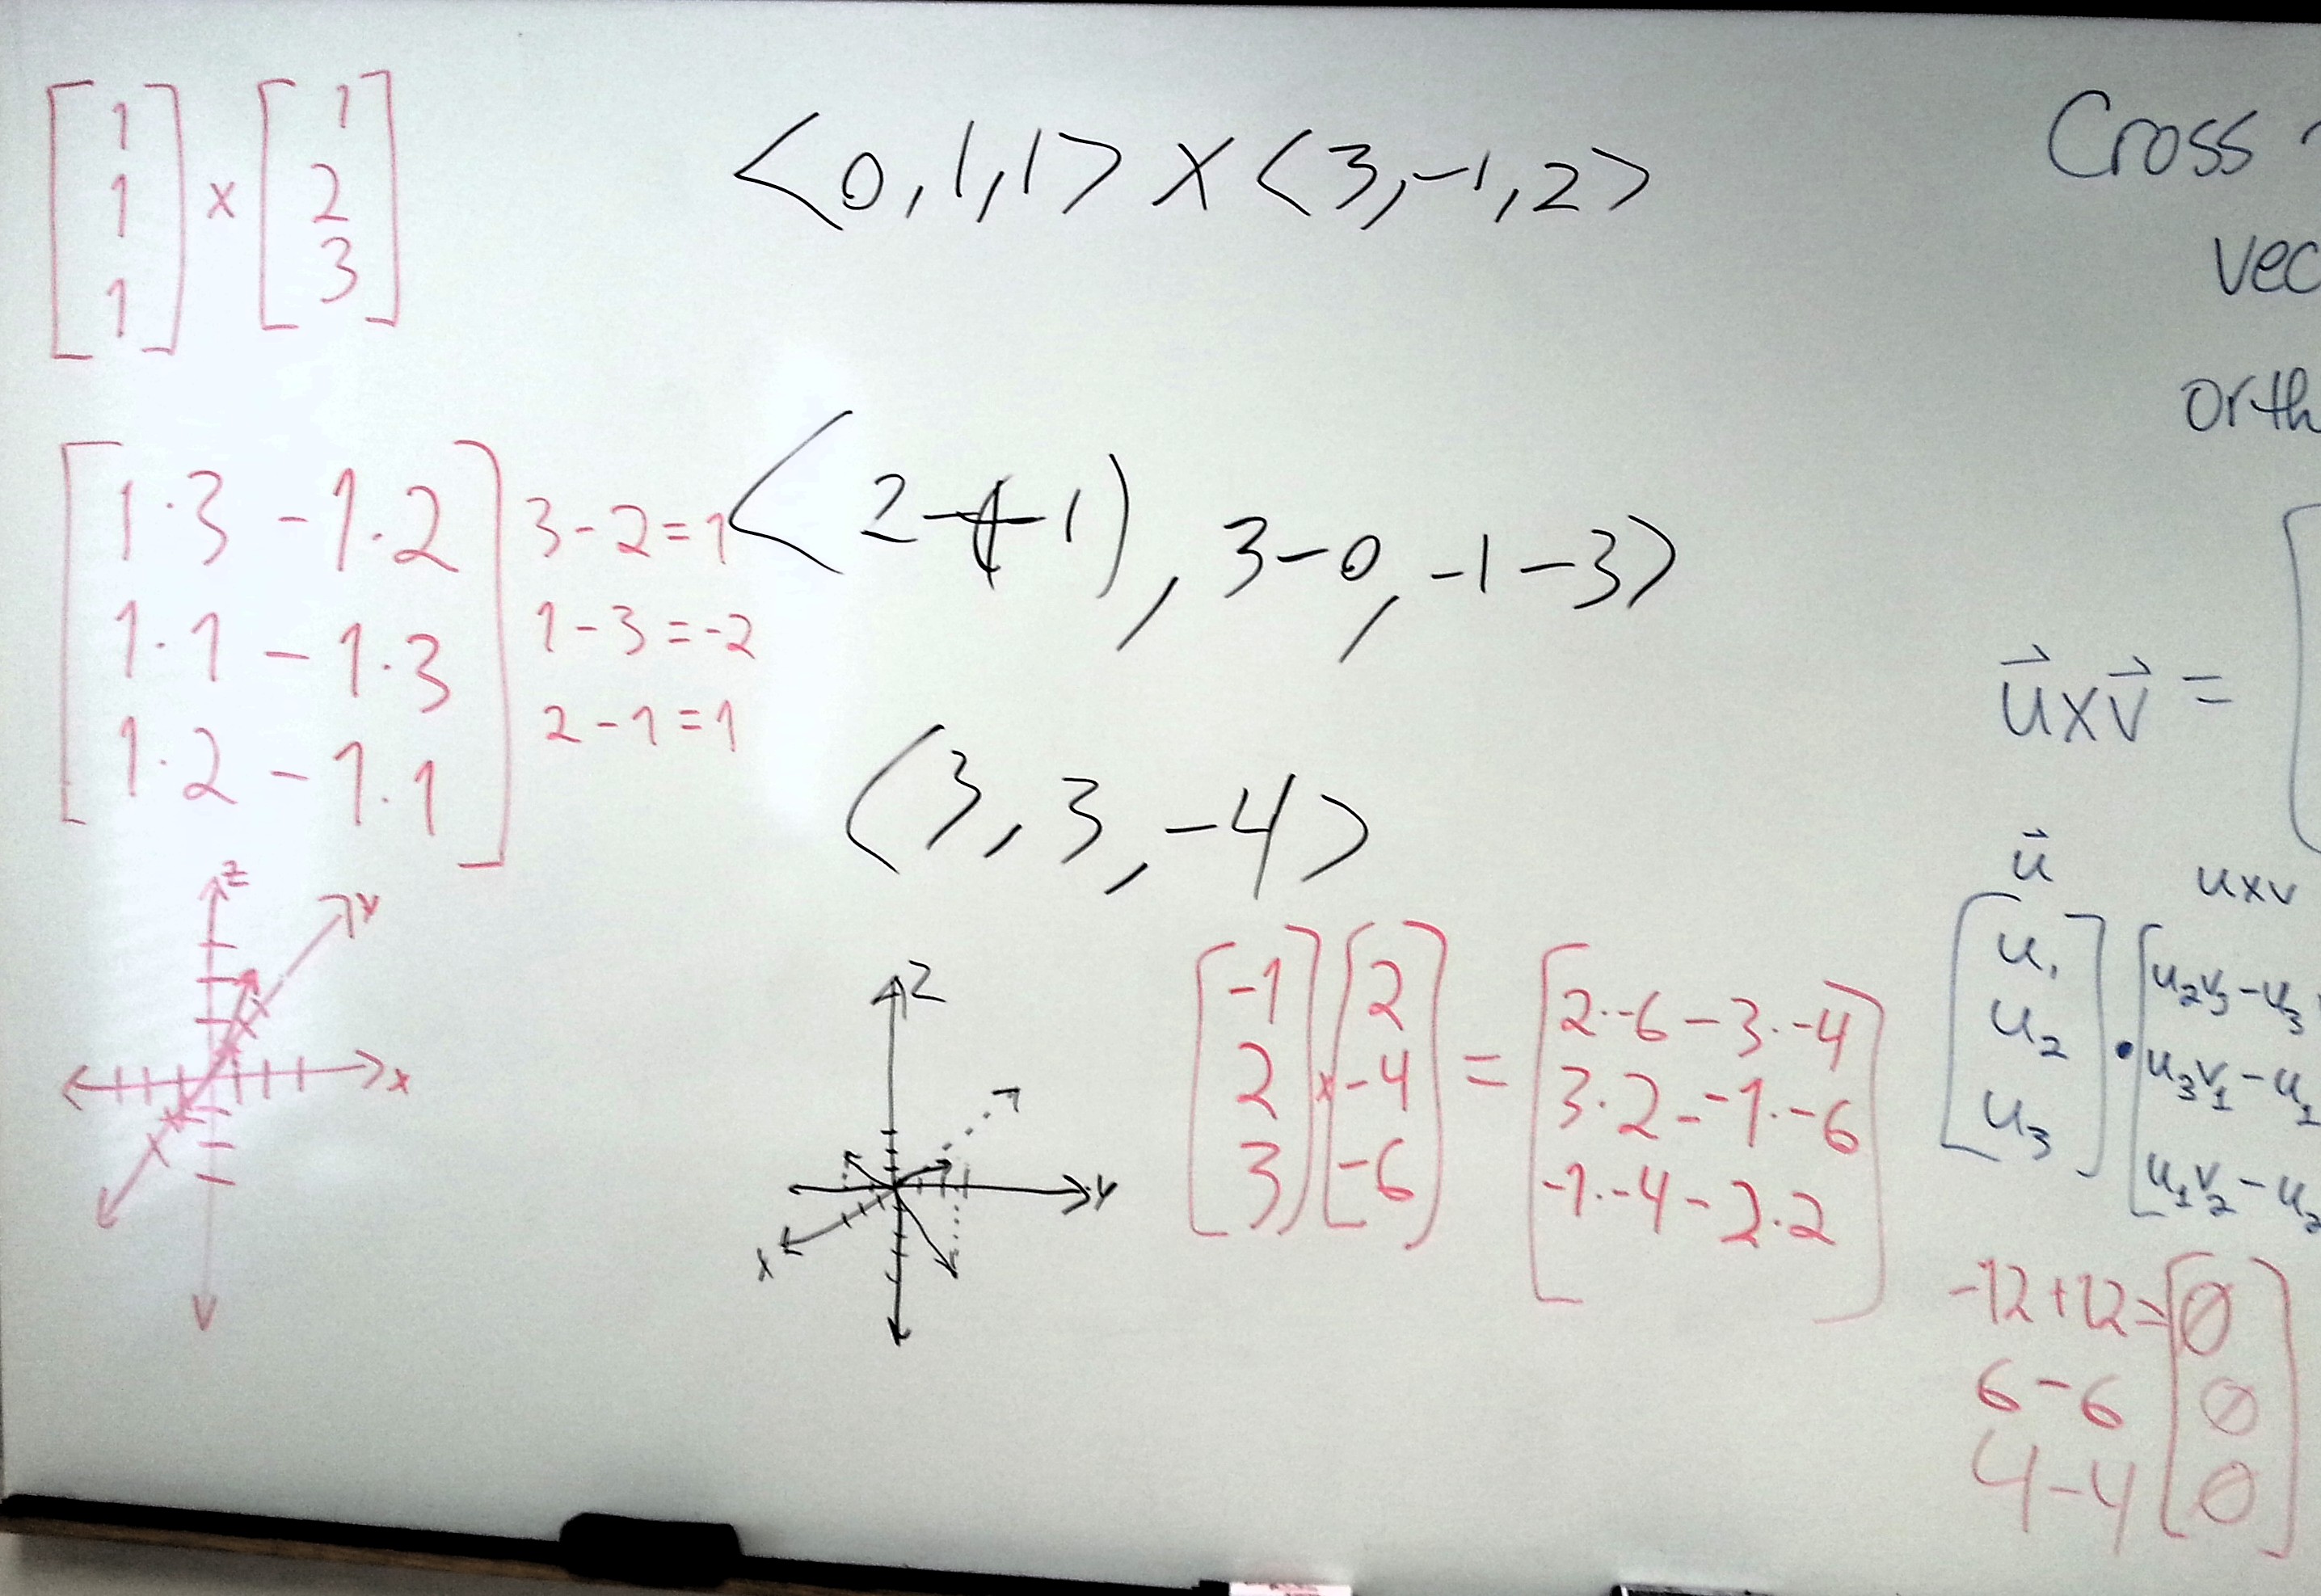 [1 1 1] × [1 2 3]
[1·3 - 1·2
1·1 - 1·3
1·2 - 1·1]
3-2=1
1-3=-2
2-1=1
z
y
x
<0,1,1> × <3,-1,2>
<2-(-1), 3-0, -1-3>
<3, 3, -4>
z
y
x
[-1 2 3] × [2 -4 -6] = [2·-6 - 3·-4
3·2 - -1·-6
-1·-4 - 2·2]
-12+12=[0
6-6 0
4-4 0]
Cross
vec
orth
u⃗×v⃗ = [
u⃗ u×v
[u₁ u₂ u₃] · [u₂v₃-u₃
u₃v₁-u₁
u₁v₂-u₂